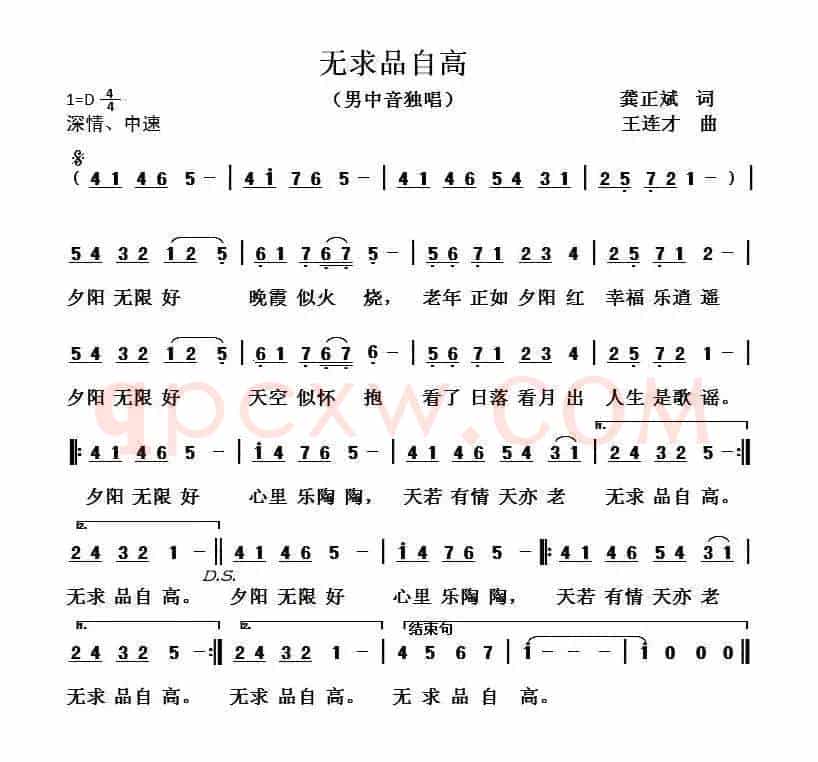 无求品自高
（男中音独唱）
1=D 4/4
龚正斌 词
深情、中速
王连才 曲
( 4 1 4 6 5 - | 4 i 7 6 5 - | 4 1 4 6 5 4 3 1 | 2 5 7 2 1 - ) |
5 4 3 2 1 2 5 | 6 1 7 6 7 5 - | 5 6 7 1 2 3 4 | 2 5 7 1 2 - |
夕阳 无限 好 晚霞 似火 烧， 老年 正如 夕阳 红 幸福 乐逍 遥
5 4 3 2 1 2 5 | 6 1 7 6 7 6 - | 5 6 7 1 2 3 4 | 2 5 7 2 1 - |
夕阳 无限 好 天空 似怀 抱 看了 日落 看月 出 人生 是歌 谣。
qpcxw.COM
1.
‖: 4 1 4 6 5 - | i 4 7 6 5 - | 4 1 4 6 5 4 3 1 | 2 4 3 2 5 - :‖
夕阳 无限 好 心里 乐陶 陶， 天若 有情 天亦 老 无求 品自 高。
2.
2 4 3 2 1 - ‖ 4 1 4 6 5 - | i 4 7 6 5 - ‖: 4 1 4 6 5 4 3 1 |
D.S.
无求 品自 高。 夕阳 无限 好 心里 乐陶 陶， 天若 有情 天亦 老
1. 2. 结束句
2 4 3 2 5 - :‖ 2 4 3 2 1 - | 4 5 6 7 | i - - - | i 0 0 0 ‖
无求 品自 高。 无求 品自 高。 无 求 品自 高。